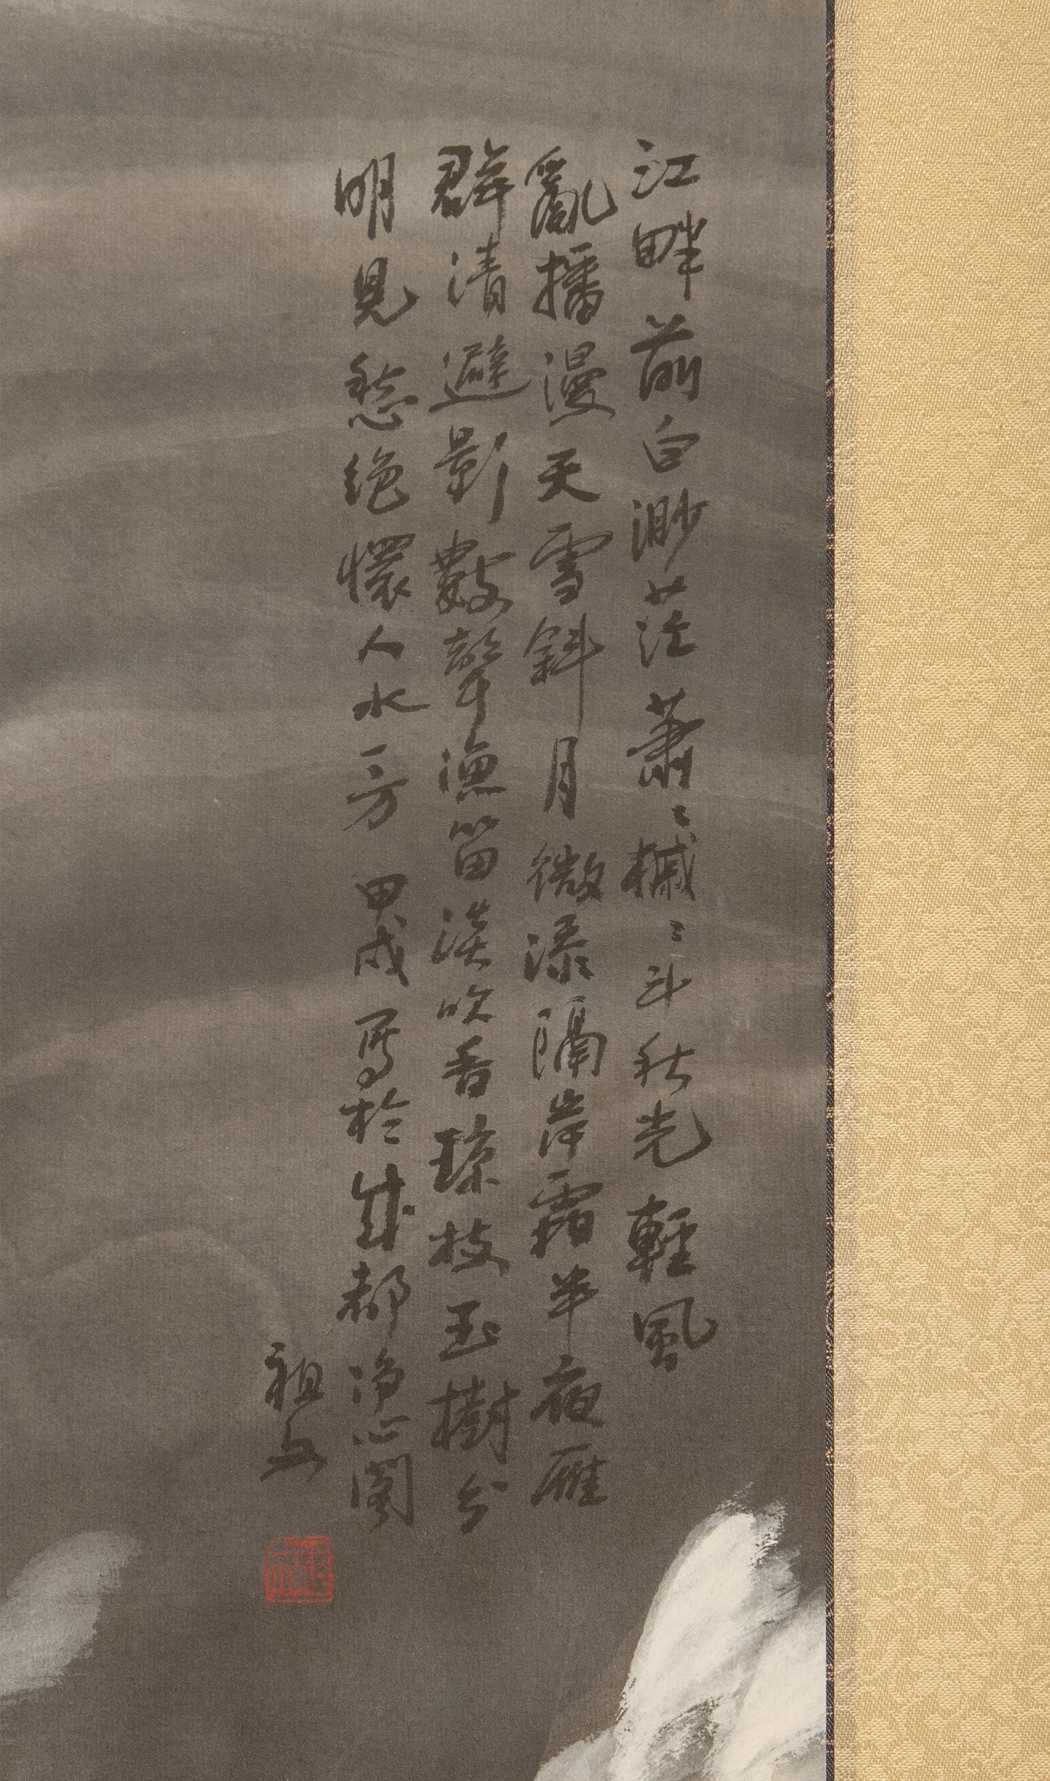 江畔前白渺茫蕭〻槭〻斗秋光輕風
亂播漫天雪斜月微添隔岸霜半夜雁
群清避影數聲漁笛淡吹香瓊枝玉樹分
明見愁絕懷人水一方 甲戌寫於成都淨心閣
祖文